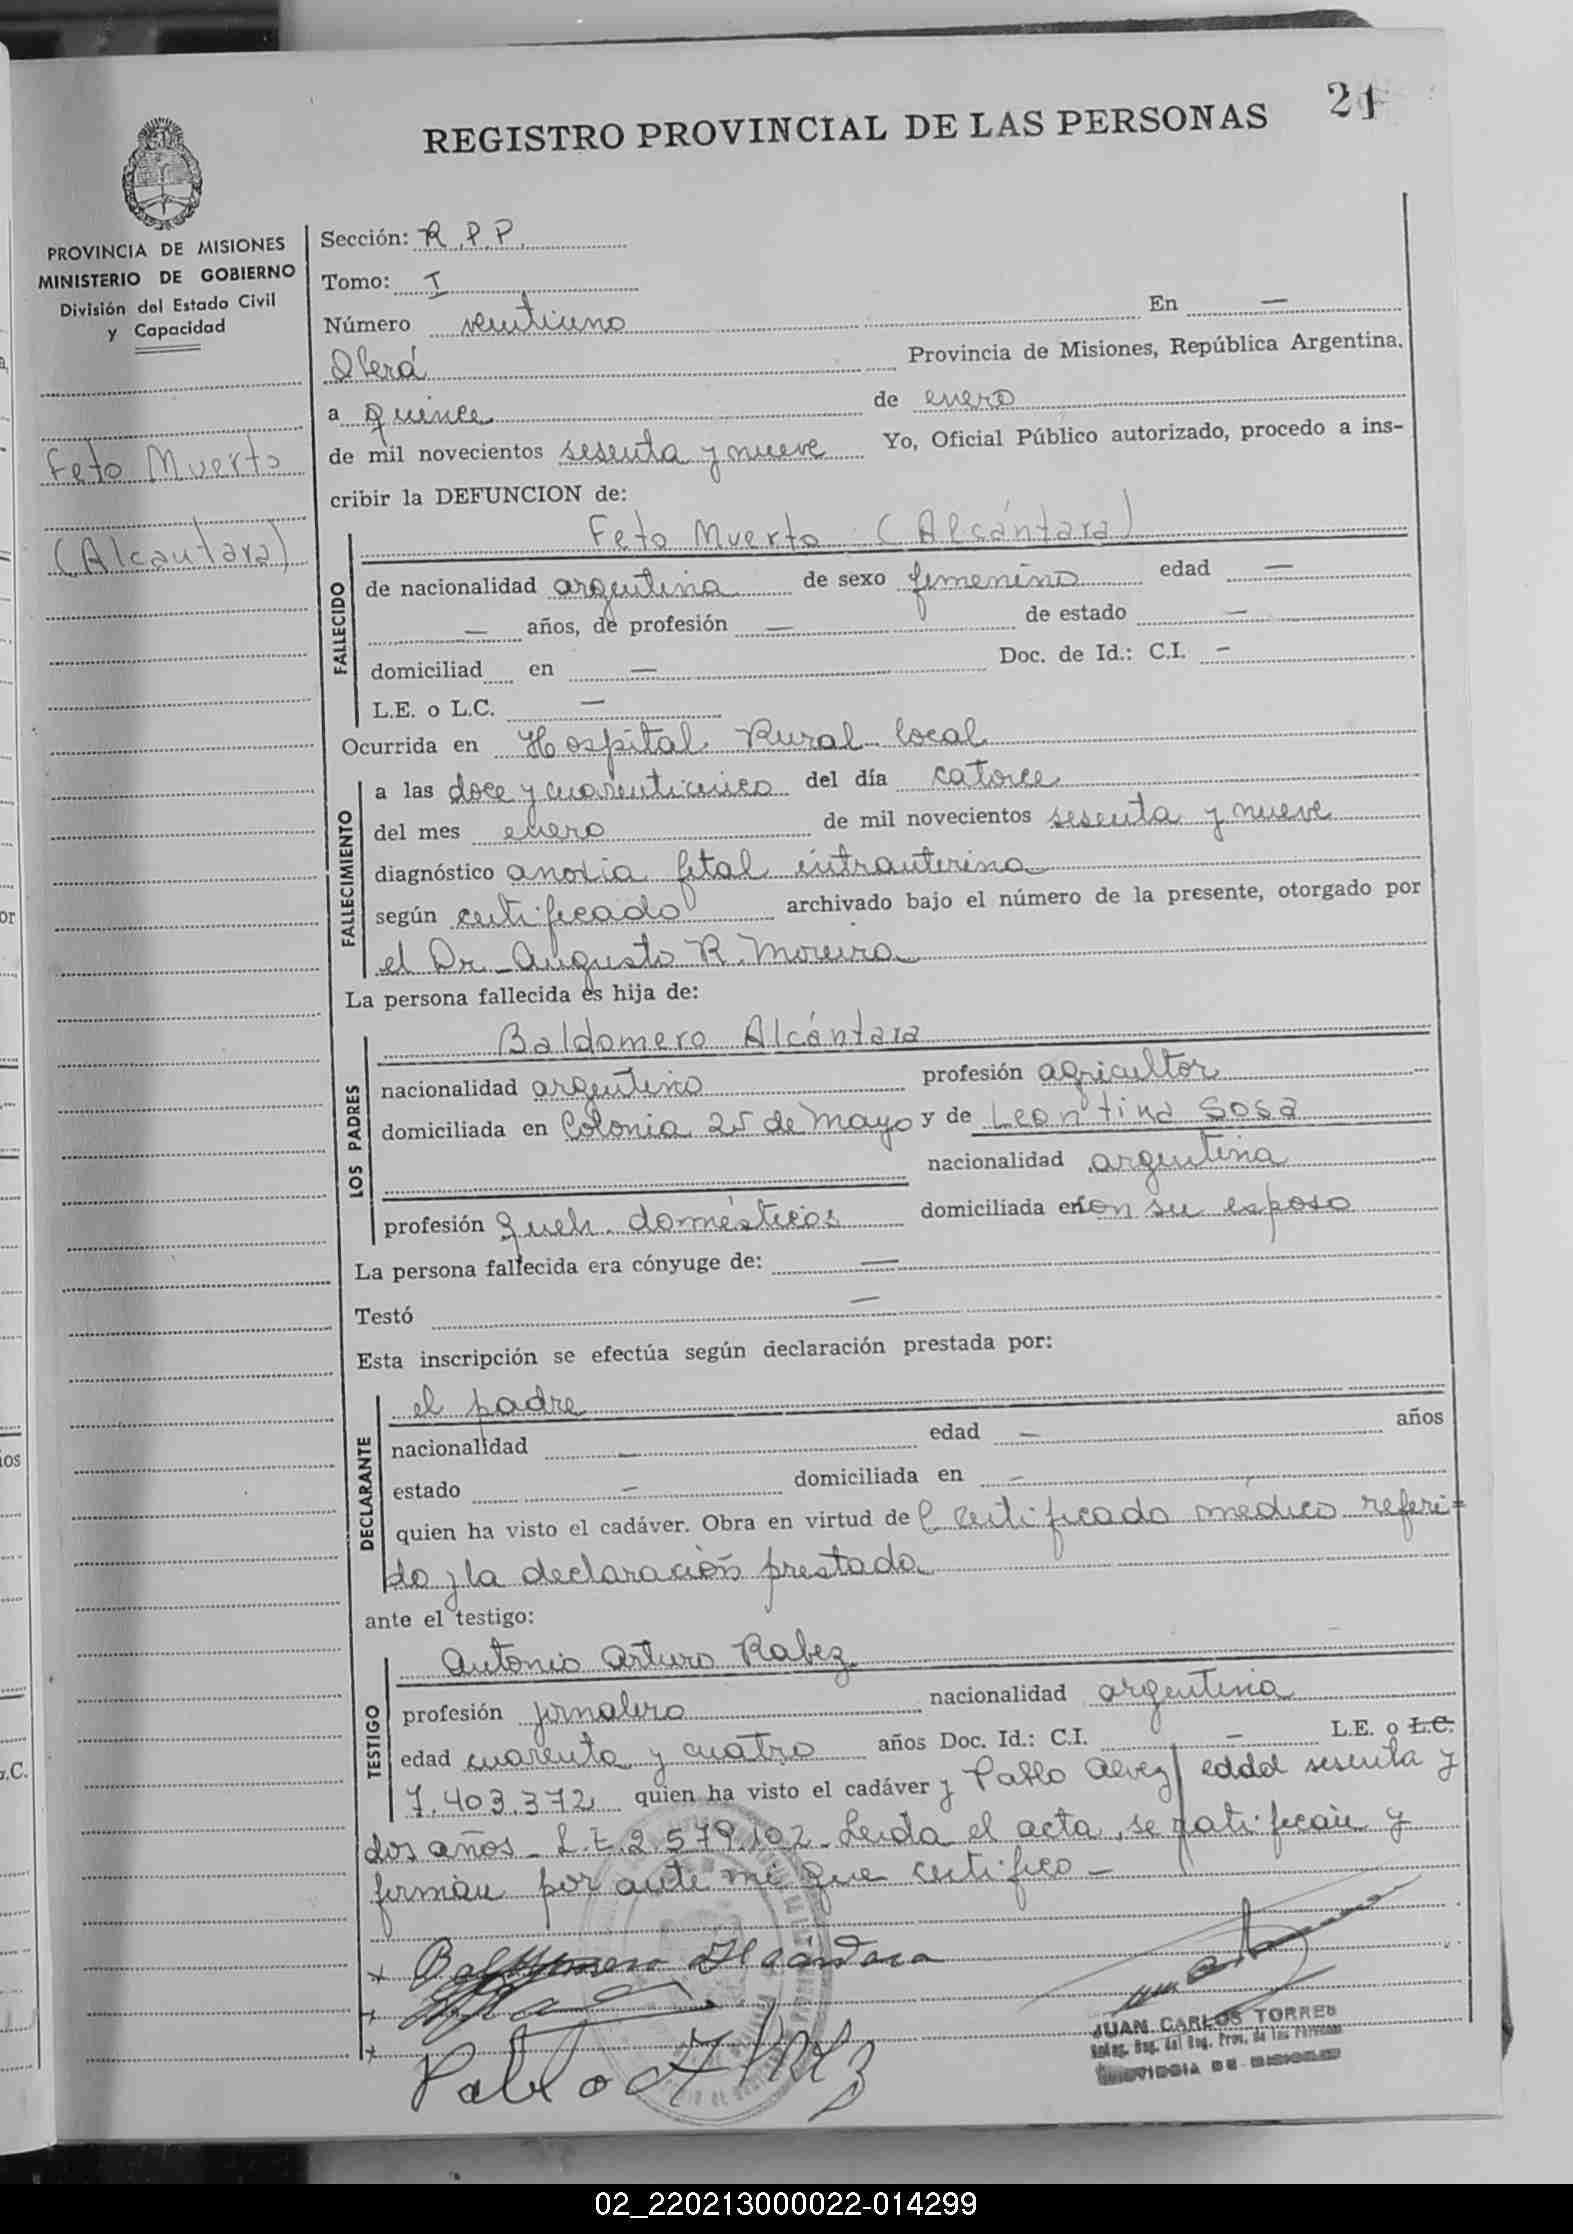 21
REGISTRO PROVINCIAL DE LAS PERSONAS
PROVINCIA DE MISIONES
MINISTERIO DE GOBIERNO
División del Estado Civil
y Capacidad
Feto Muerto
(Alcantara)
Sección: R.P.P.
Tomo: I
Número veintiuno En —
Oberá Provincia de Misiones, República Argentina,
a quince de enero
de mil novecientos sesenta y nueve Yo, Oficial Público autorizado, procedo a ins-
cribir la DEFUNCION de:
FALLECIDO
Feto Muerto (Alcántara)
de nacionalidad argentina de sexo femenino edad —
— años, de profesión — de estado —
domiciliad en — Doc. de Id.: C.I. —
L.E. o L.C. —
Ocurrida en Hospital Rural local
FALLECIMIENTO
a las doce y cuarenticinco del día catorce
del mes enero de mil novecientos sesenta y nueve
diagnóstico anoxia fetal intrauterina
según certificado archivado bajo el número de la presente, otorgado por
el Dr. Augusto R. Moreira
La persona fallecida es hija de:
LOS PADRES
Baldomero Alcántara
nacionalidad argentino profesión agricultor
domiciliada en Colonia 25 de Mayo y de Leontina Sosa
nacionalidad argentina
profesión queh. domésticos domiciliada en con su esposo
La persona fallecida era cónyuge de: —
Testó —
Esta inscripción se efectúa según declaración prestada por:
DECLARANTE
el padre
nacionalidad — edad — años
estado — domiciliada en —
quien ha visto el cadáver. Obra en virtud del certificado médico referi-
do y la declaración prestada
ante el testigo:
TESTIGO
Antonio Arturo Rabez
profesión jornalero nacionalidad argentina
edad cuarenta y cuatro años Doc. Id.: C.I. — L.E. o L.C.
7.403.372 quien ha visto el cadáver y Pablo Alvez edad sesenta y
dos años - L.E. 2.579.102 - Leída el acta, se ratifican y
firman por ante mi que certifico -
x Baldomero Alcántara
x
x Pablo
JUAN CARLOS TORRES
PROVINCIA DE MISIONES
02_220213000022-014299